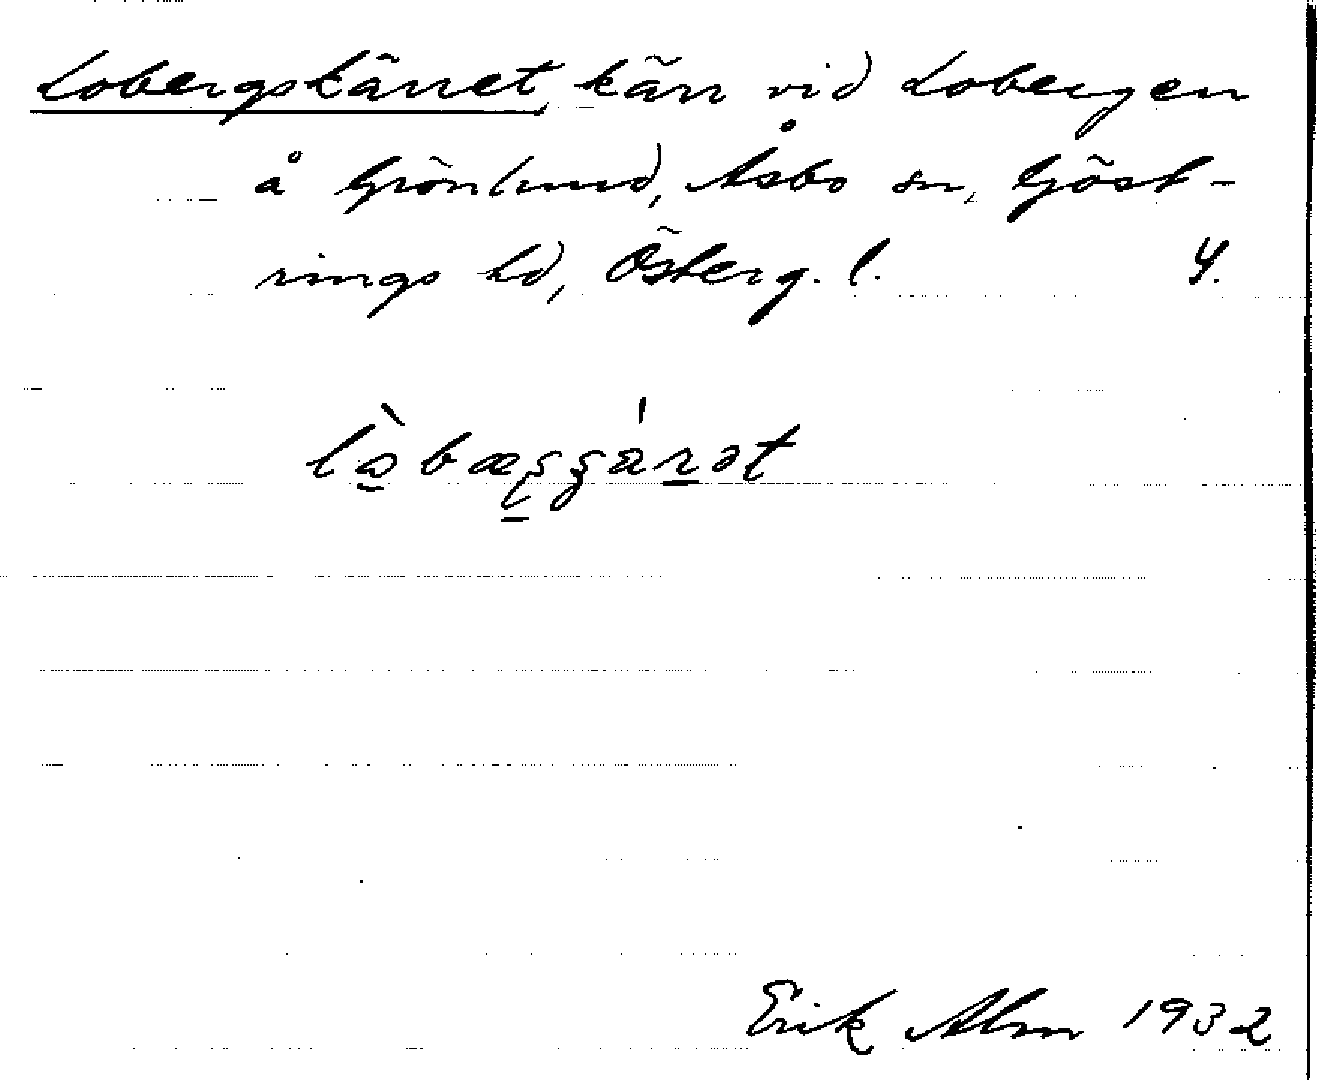 Lobergskärret, kärr vid Lobergen
å Grönlund, Åsbo sn, Göst-
rings hd, Österg. l. Y.
Erik Alm 1932